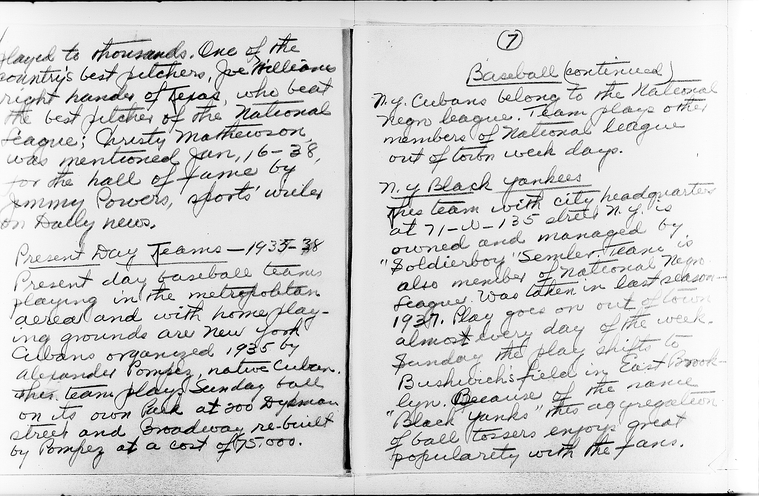 played to thousands. One of the
country's best pitchers, Joe Williams
right hander of Texas, who beat
the best pitcher of the National
League; Christy Mathewson,
was mentioned Jan, 16-38,
for the hall of fame by
Jimmy Powers, sports writer
on Daily news.
Present Day Teams - 1935-38
Present day baseball teams
playing in the metropolitan
aerea and with home play-
ing grounds are New York
Cubans organized 1935 by
Alexander Pompez, native Cuban.
This team plays Sunday ball
on its own Park at 200 Dyckman
street and Broadway re-built
by Pompez at a cost of 75.000.
7
Baseball (continued)
N.Y. Cubans belong to the National
Negro league. Team plays other
members of National league
out of town week days.
N.Y Black Yankees
This team with city headquarters
at 71-W-135 street N.Y. is
owned and managed by
"Soldierboy" Semler. Team is
also member of National Negro
League. Was taken in last season
1937. Play goes on out of town
almost every day of the week.
Sunday the play shifts to
Bushwich's field in East Brook-
lyn. Because of the name
"Black Yanks" this aggregation
of ball tossers enjoys great
popularity with the fans.